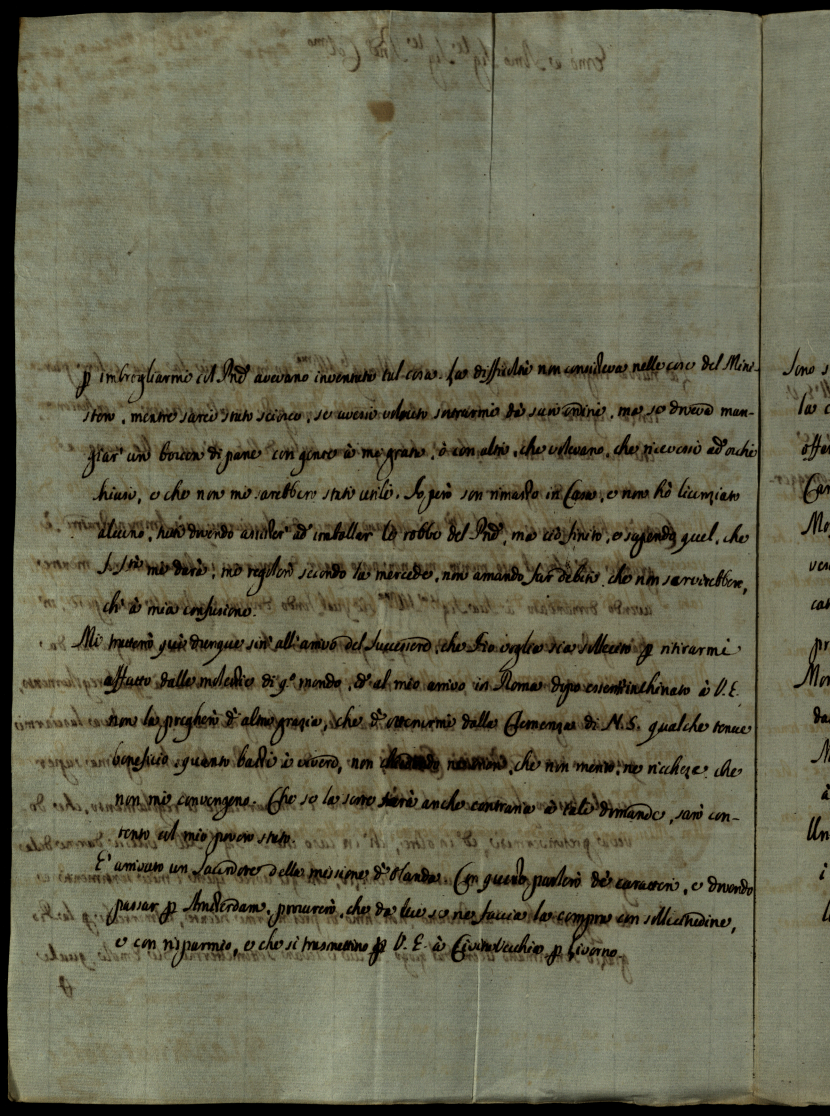 p imbrogliarmi col Pñé avevano inventato tal cosa. La difficoltà non consisteva nelle cose del Mini-
stero, mentre sarei stato sciocco, se avessi voluto sottrarmi da suoi ordini, ma se dovevo man-
giar' un boccon di pane con gente à me grata, ò con altri, che volevano, che ricevessi ad' occhi
chiusi, e che non mi sarebbero stati utili. Io però son rimasto in Casa, e non hò licenziato
alcuno, ben dovendo assister' ad' imballar le robbe del Pñé, ma ciò finito, e sapendo quel, che
mi darà, mi regolerò secondo la mercede, non amando far debiti che non servirebbero,
ch' à mia confusione.
Mi tratterrò quì dunque sin' all' arrivo del Successore, che Dio voglia sia sollecito p ritirarmi
affatto dalle molestie di q.º mondo, ed' al mio arrivo in Roma dopo essermi inchinato à V. E.
non la pregherò d' altra grazia, che d' ottenermi dalla Clemenza di N. S. qualche tenue
beneficio, quanto basti à vivere, non che non merito, ne ricchezze che
non mi convengono. Che se la sorte sarà anche contraria à tale dimande, sarò con-
tento col mio povero stato.
E' arrivato un Sacerdote della missione d' Olanda. Con questo parlerò de' caratteri, e dovendo
passar p Amsterdam, procurerò, che da lui se ne faccia la compra con sollecitudine,
e con risparmio, e che si trasmettino p V. E. à Civitavecchia p Livorno.